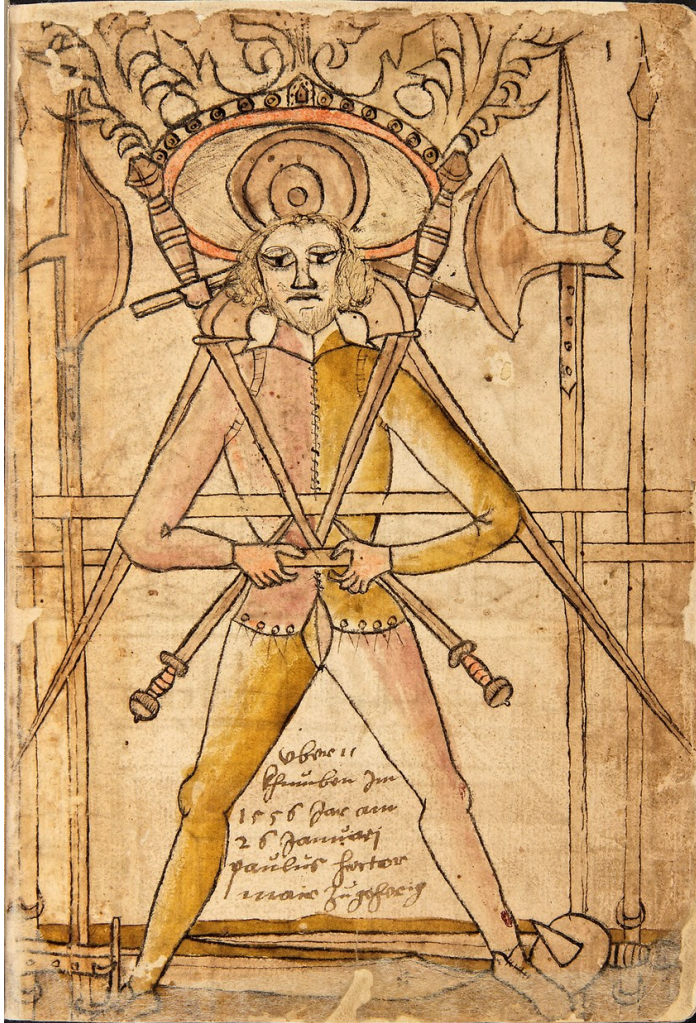 vber 11
khnüben Jm
1556 Jar am
26 Januarj
paulus hector
mair zugehorig